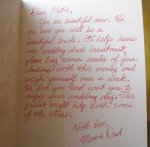 Dear Katie,
You are beautiful now. We
are sure you will be a
beautiful bride. To help insure
our wedding dress investment,
please buy some scales of your
choosing with this money and
weigh yourself once a week.
We love you and want you to
enjoy your wedding day. This
present might help with some
of the stress.
With love,
Mom & Dad